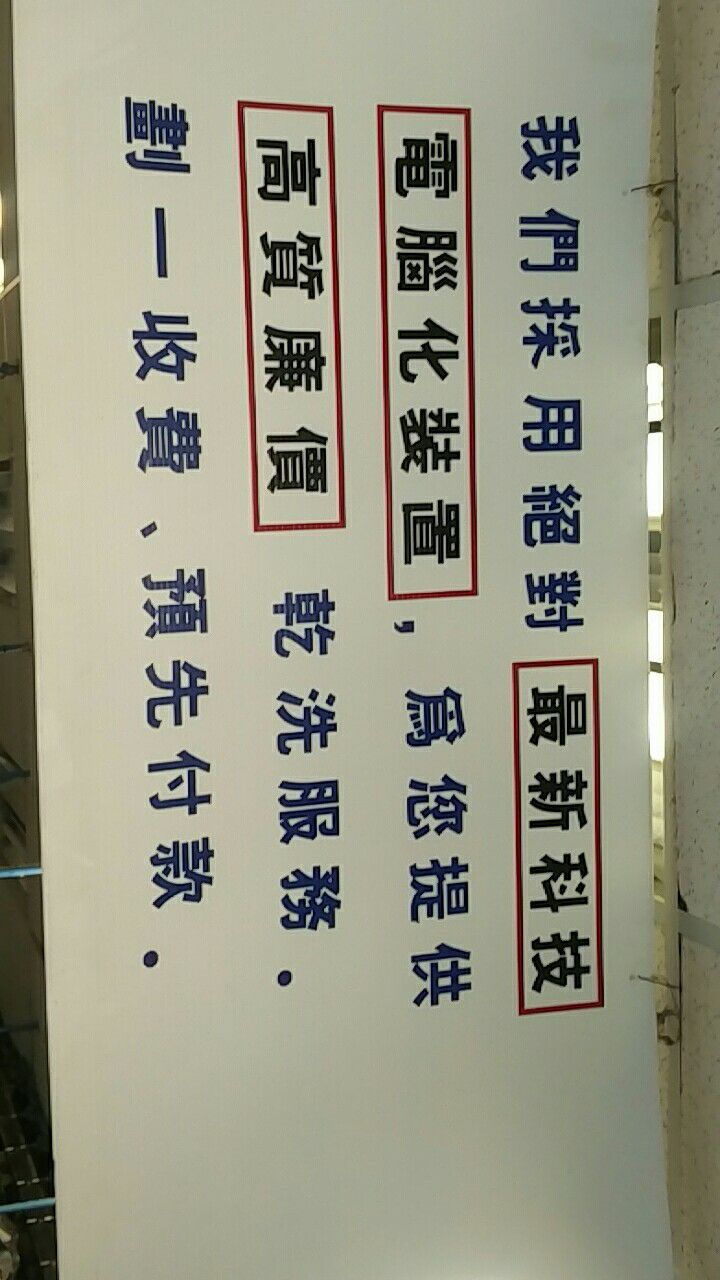 我們採用絕對最新科技
電腦化裝置，爲您提供
高質廉價 乾洗服務．
劃一收費、預先付款．